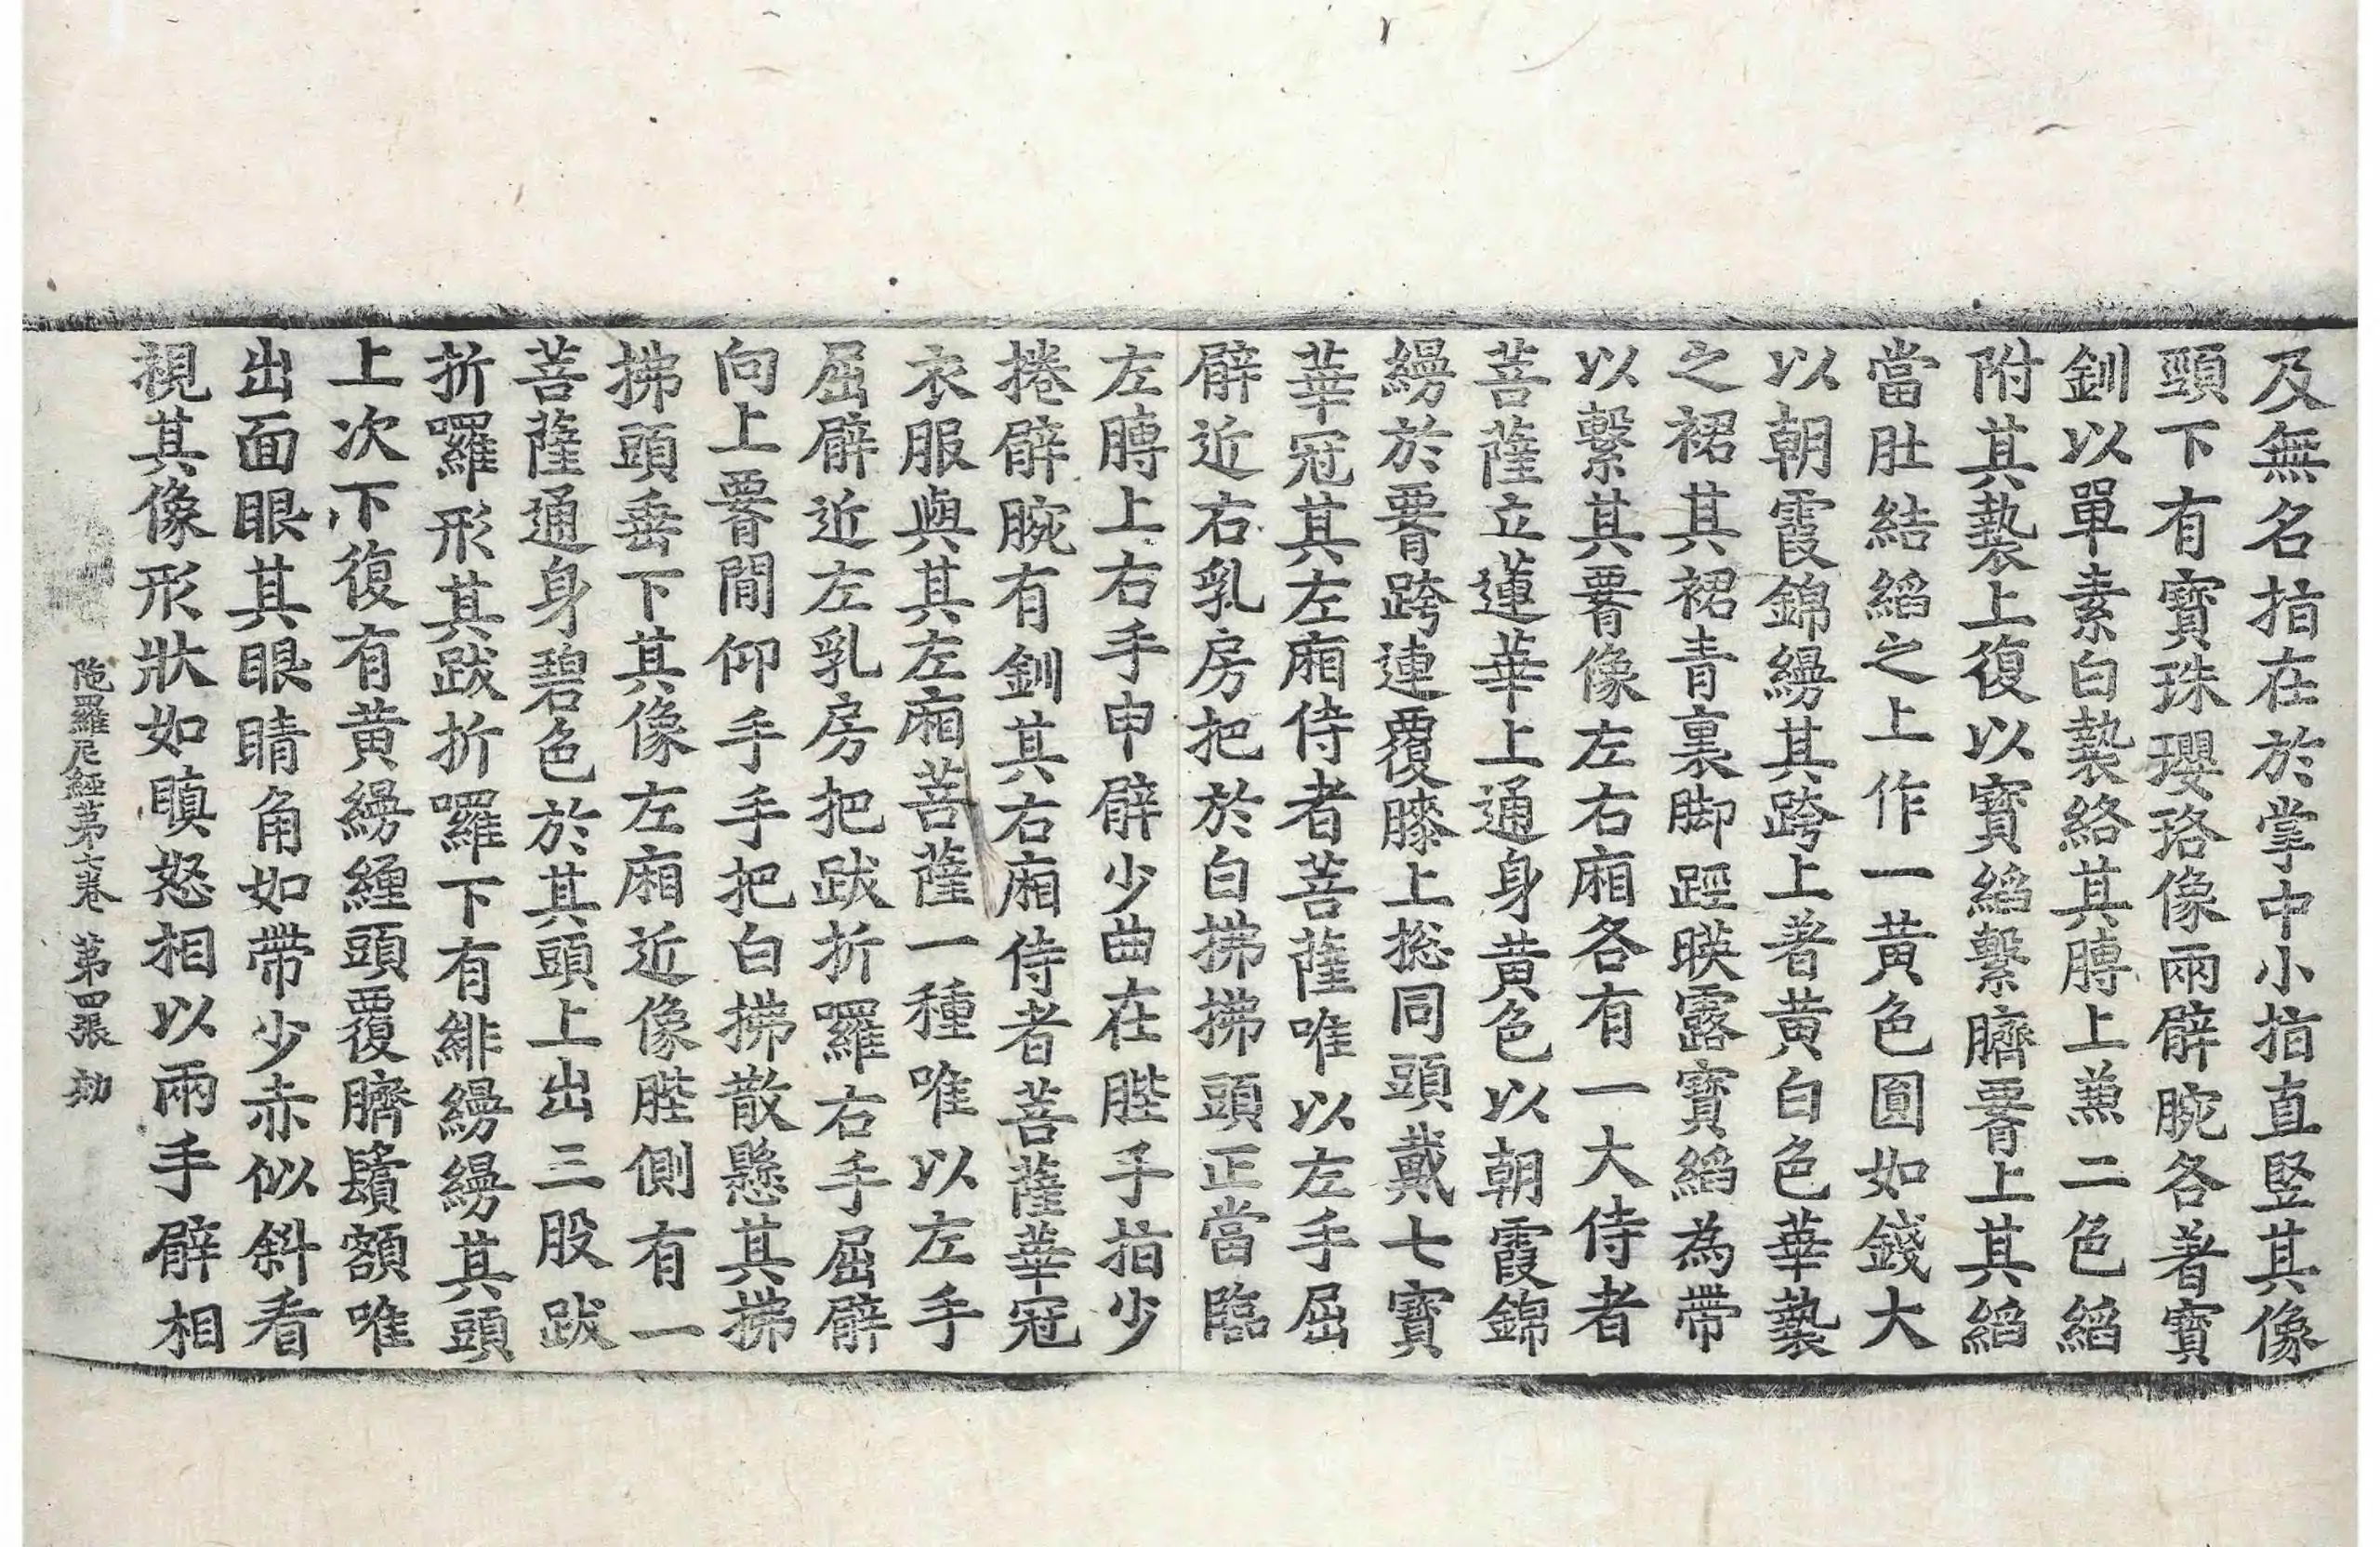 及無名指在於掌中小指直竪其像
頸下有寶珠瓔珞像兩臂腕各著寶
釧以單素白褺絡其膊上兼二色縚
附其褺上復以寶縚繫臍署上其縚
當肚結縚之上作一黃色圓如錢大
以朝霞錦縵其跨上著黃白色華褺
之裙其裙青裏脚踁暎露寶縚為帶
以繫其署像左右廂各有一大侍者
菩薩立蓮華上通身黃色以朝霞錦
縵於署跨連覆膝上揔同頭戴七寶
華冠其左廂侍者菩薩唯以左手屈
臂近右乳房把於白拂拂頭正當臨
左膊上右手申臂少曲在䏶手指少
捲臂腕有釧其右廂侍者菩薩華冠
衣服與其左廂菩薩一種唯以左手
屈臂近左乳房把跋折囉右手屈臂
向上署間仰手手把白拂散懸其拂
拂頭垂下其像左廂近像䏶側有一
菩薩通身碧色於其頭上出三股跋
折囉形其跋折囉下有緋縵縵其頭
上次下復有黃縵纏頭覆臍鬚額唯
出面眼其眼睛角如帶少赤似斜看
視其像形狀如瞋怒相以兩手臂相
陁羅尼經第七卷 第四張 劫